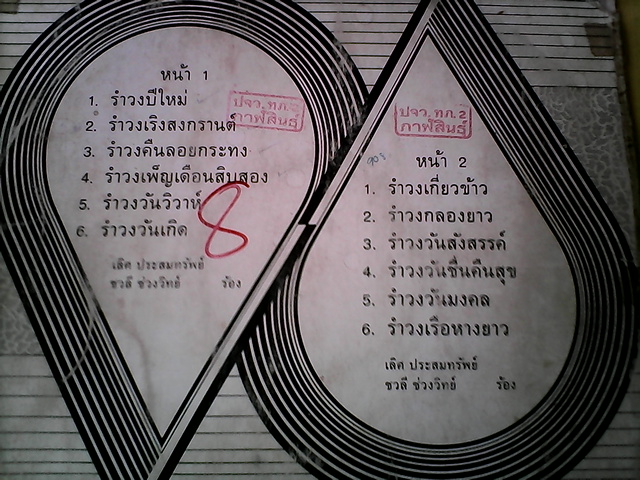 หน้า 1
1. รำวงปีใหม่
2. รำวงเริงสงกรานต์
3. รำวงคืนลอยกระทง
4. รำวงเพ็ญเดือนสิบสอง
5. รำวงวันวิวาห์
6. รำวงวันเกิด
เลิศ ประสมทรัพย์
ชวลี ช่วงวิทย์ ร้อง
ปจว. ทภ.
กาฬสินธุ์
8
ปจว. ทภ. 2
กาฬสินธุ์
หน้า 2
1. รำวงเกี่ยวข้าว
2. รำวงกลองยาว
3. รำวงวันสังสรรค์
4. รำวงวันชื่นคืนสุข
5. รำวงวันมงคล
6. รำวงเรือหางยาว
เลิศ ประสมทรัพย์
ชวลี ช่วงวิทย์ ร้อง